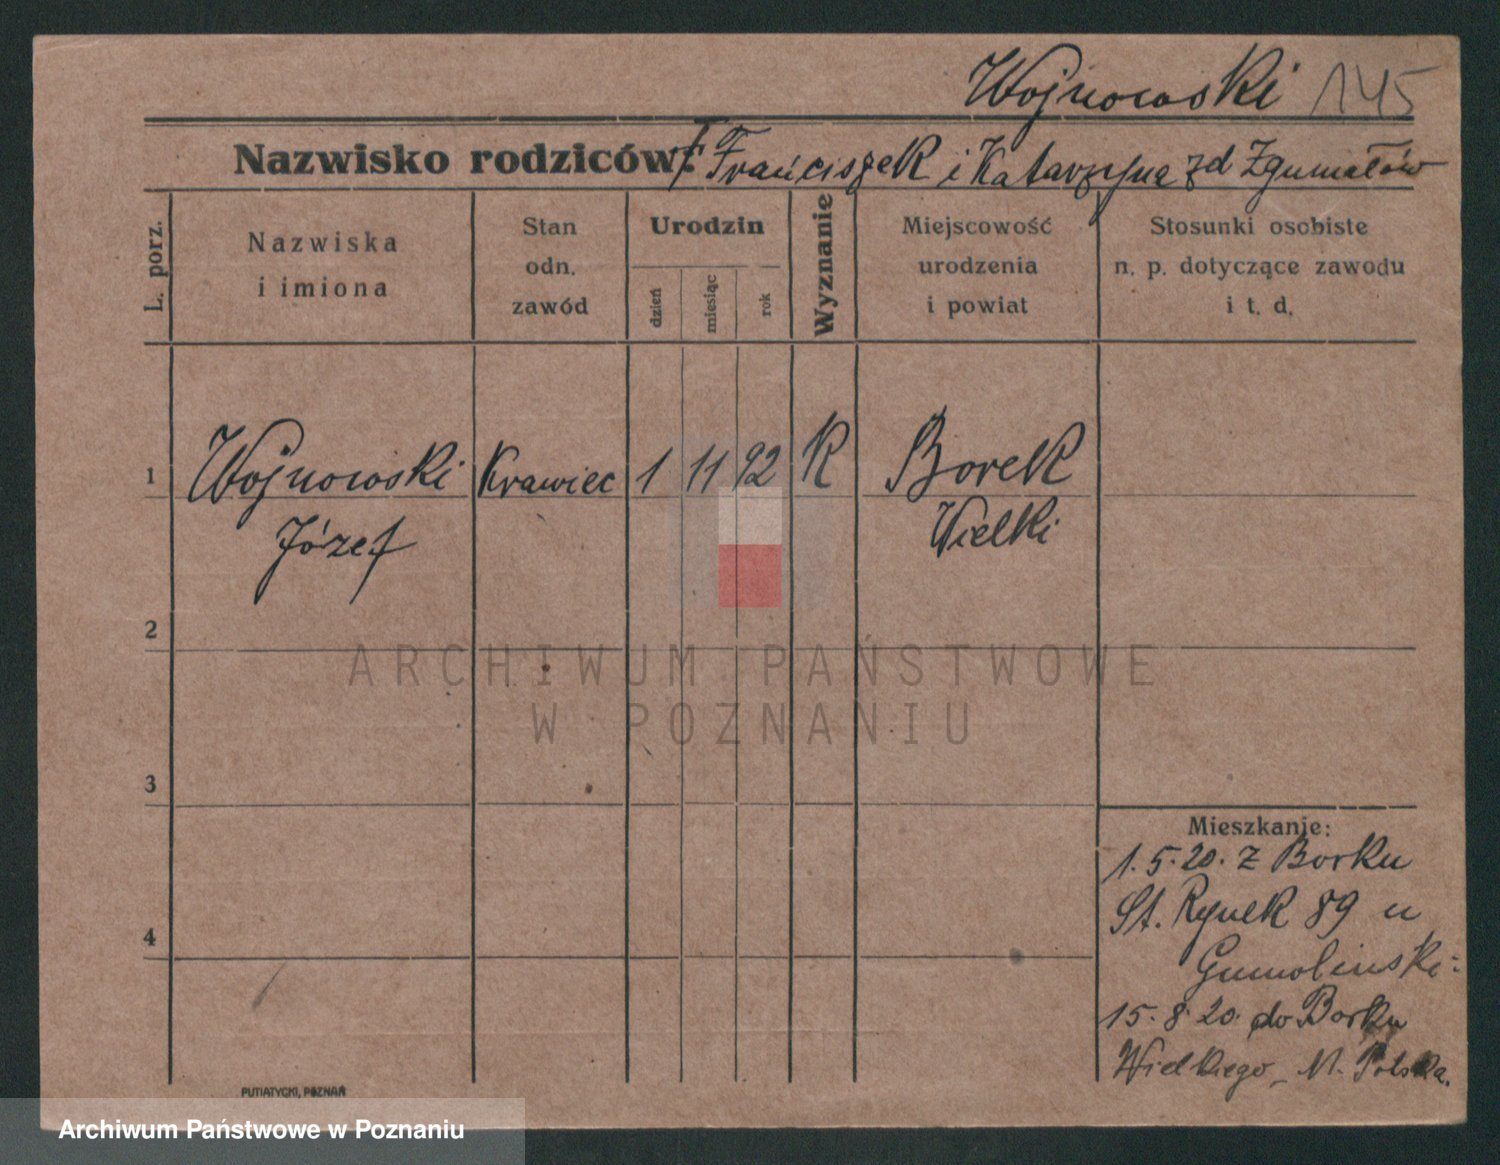 Wojnowski 145
Nazwisko rodziców: † Franciszek i Katarzyna zd Zgumałów
L. porz.
Nazwiska
i imiona
Stan
odn.
zawód
Urodzin
dzień
miesiąc
rok
Wyznanie
Miejscowość
urodzenia
i powiat
Stosunki osobiste
n. p. dotyczące zawodu
i t. d.
1 Wojnowski Krawiec 1 11 92 K Borek
Józef Wielki
2
ARCHIWUM PAŃSTWOWE
W POZNANIU
3
Mieszkanie:
1.5.20. z Borku
St. Rynek 89 u
4
15.8.20. do Borku
Wielkiego M. Polska.
PUTIATYCKI, POZNAŃ
Archiwum Państwowe w Poznaniu